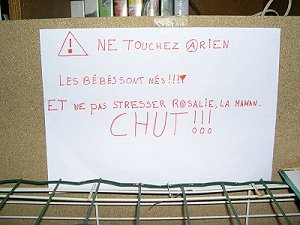 ! NE TOUCHEZ A RIEN
LES BÉBÉS SONT NÉS!!!
ET NE PAS STRESSER ROSALIE, LA MAMAN.
CHUT!!!